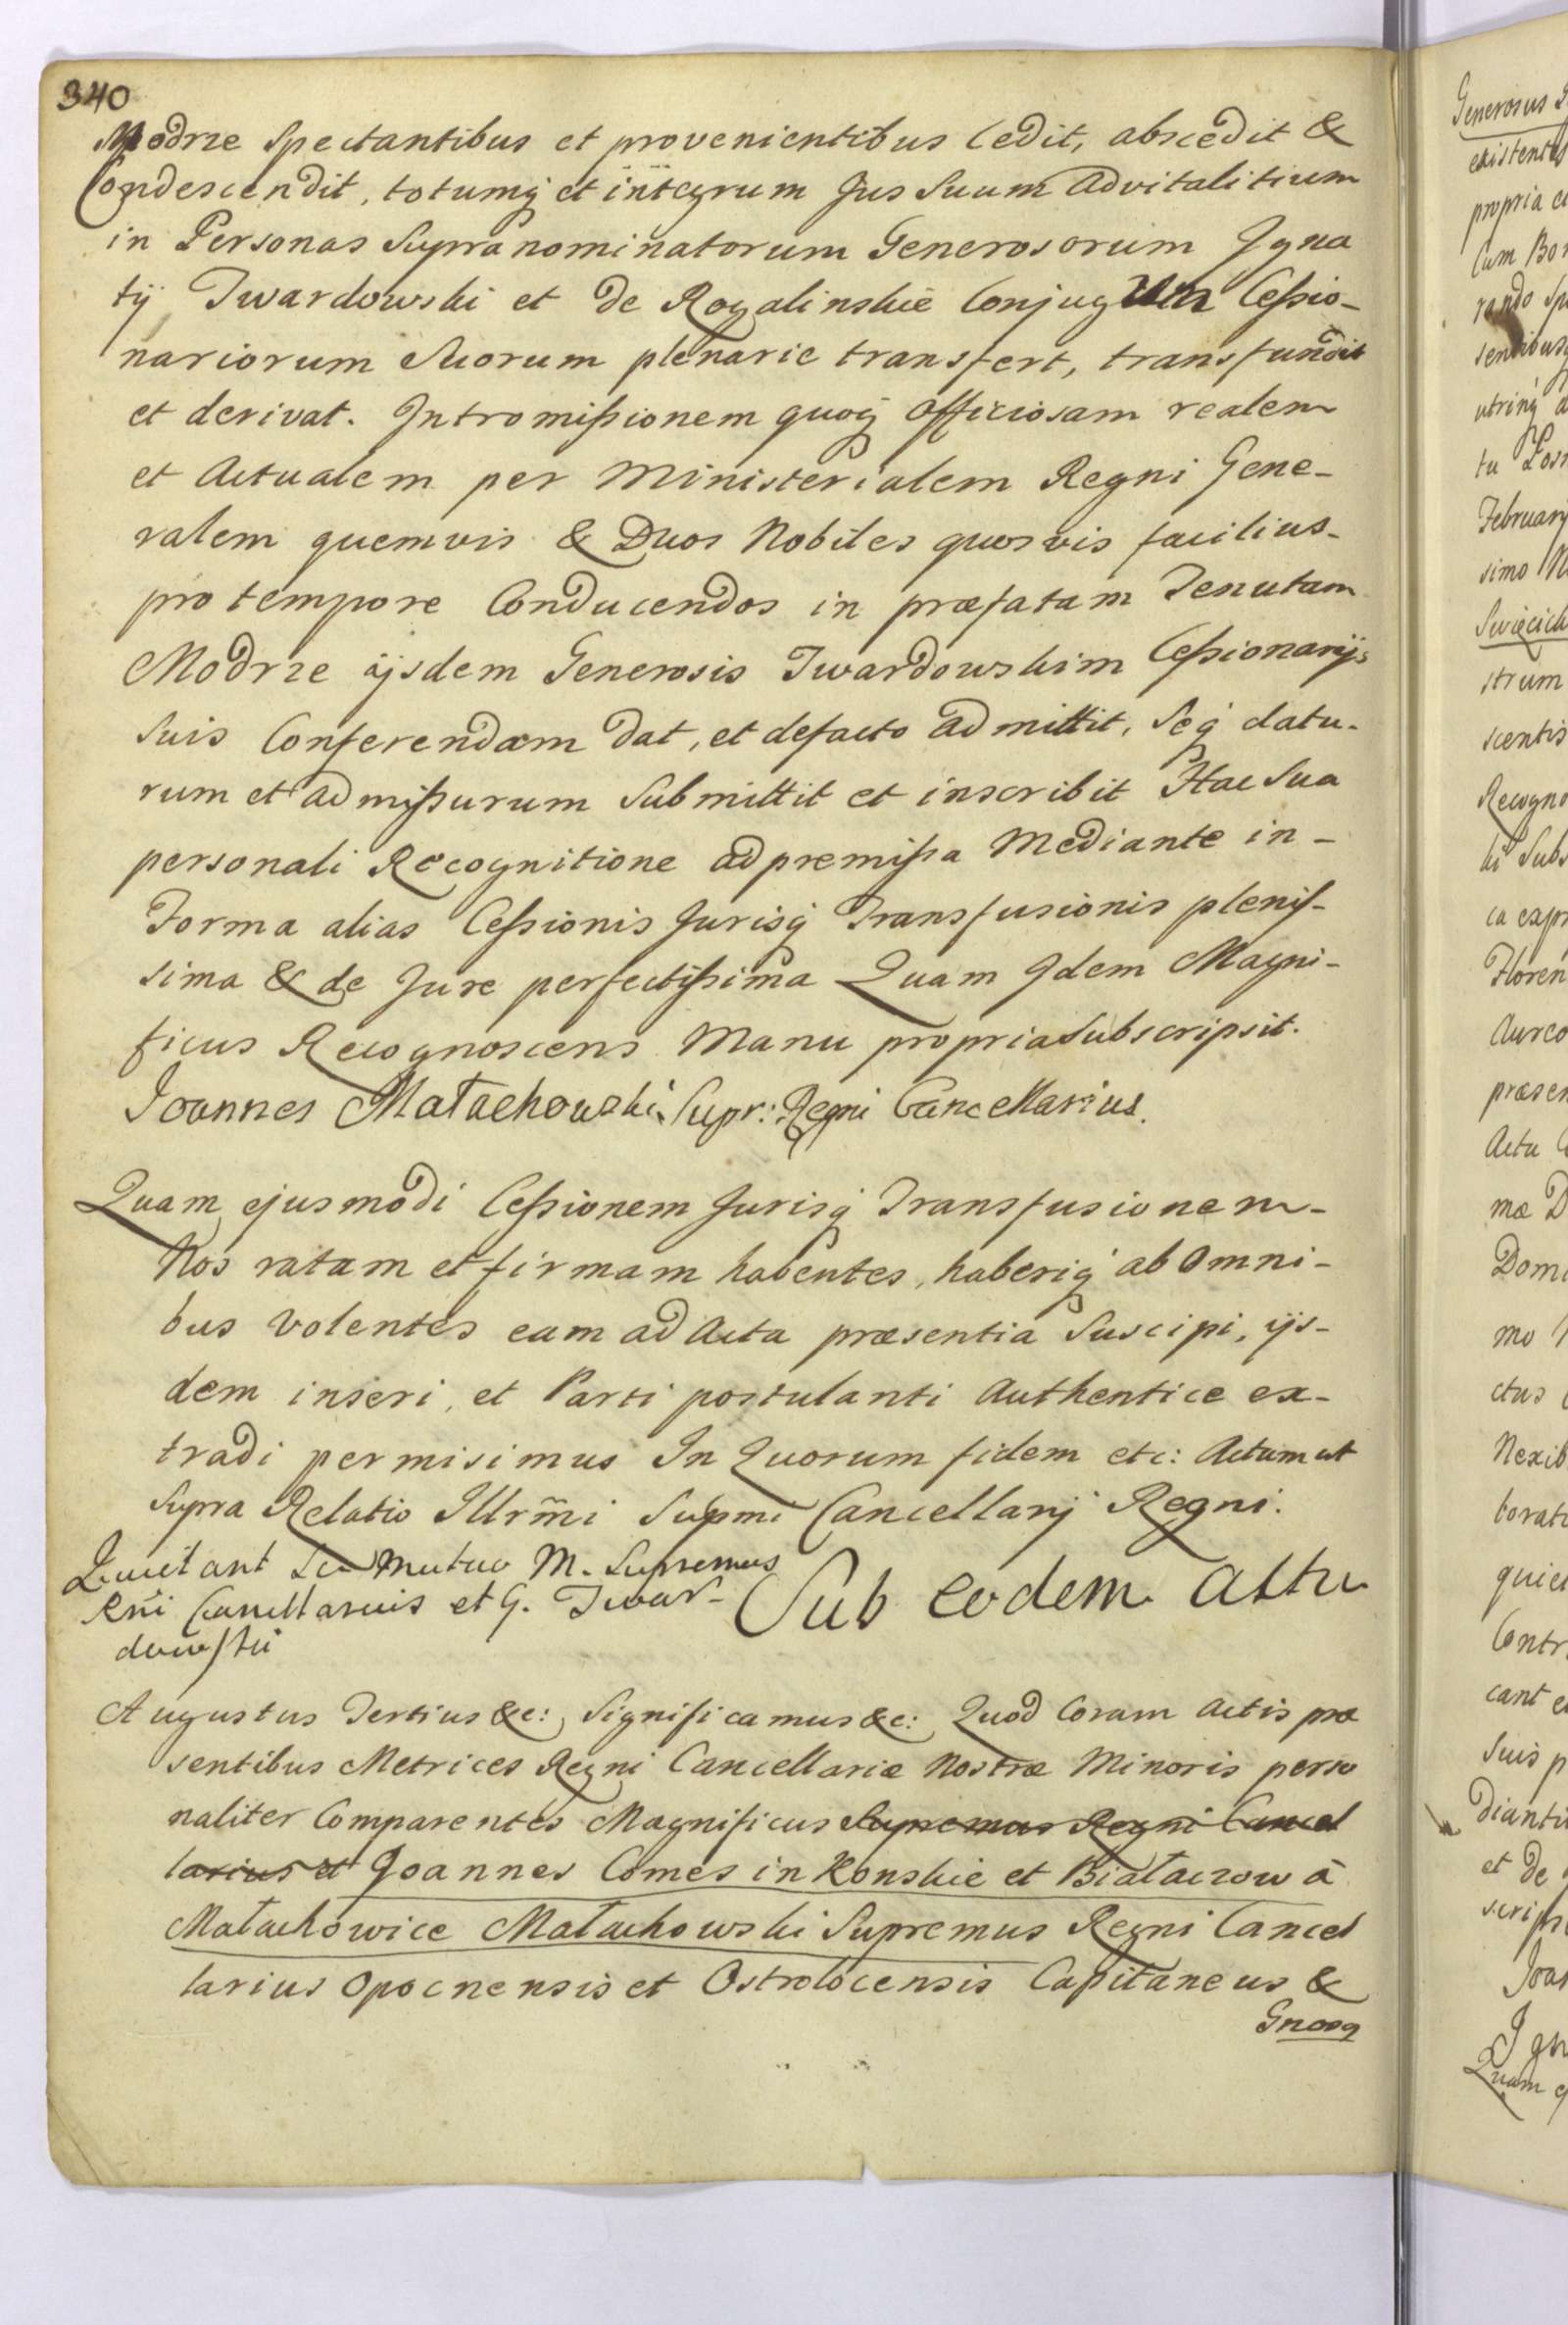 340
Modrze Spectantibus et provenientibus Cedit, abscedit &
Condescendit, totumq́ et integrum Jus Suum advitalitium
in Personas Supranominatorum Generosorum Igna
tij Twardowski et de Rogalinskie Conjugum Cessio-
nariorum Suorum plenarie transfert, transfundit
et derivat. Intromissionem quoq́ Officiosam realem
et Actualem per Ministerialem Regni Gene-
ralem quemvis & Duos Nobiles quosvis facilius-
pro tempore Conducendos in præfatam Tenutam
Modrze ijsdem Generosis Twardowskim Cessionarijs
Suis Conferendam dat, et defacto admittit, Seq́ datu-
rum et admissurum Submittit et inscribit Hac Sua
personali Recognitione ad premissa Mediante in-
Forma alias Cessionis Jurisq́ Transfusionis plenis-
sima & de Jure perfectissima Quam Idem Magni-
ficus Recognoscens Manu propria Subscripsit.
Joannes Małachowski Supr: Regni Cancellarius.
Quam ejusmodi Cessionem Jurisq́ Transfusionem-
Nos ratam et firmam habentes, haberiq́ ab Omni-
bus Volentes eam ad Acta præsentia Suscipi, ijs-
dem inseri, et Parti postulanti Authentice ex-
tradi permisimus In Quorum fidem etc: Actum ut
Supra Relatio Illrm̃i Supmi Cancellarij Regni.
Quietant se mutuo M. Supremus
Rñi Cancellarius et G. Twar-
dowski
Sub eodem actu
Augustus Tertius &c: Significamus &c: Quod Coram Actis præ
sentibus Metrices Regni Cancellariæ Nostræ Minoris perso
naliter Comparentes Magnificus Supremus Regni Cancel
larius et Joannes Comes in Konskie et Białaczow à
Małachowice Małachowski Supremus Regni Cancel
larius Opocnensis et Ostrolocensis Capitaneus &
Gnosq
Generosus
existentes
propria
Cum
rando
utrinq́
tu
February
simo
strum
scentis
Recogno
ki Subs
ca expr
Floren
Aureo
præsen
Actu
mæ D
Domi
mo
ctus
Nexib
borato
quiet
Contr
cant e
Suis p
Dianti
et de
scrips
Joan
Ign
Quam e